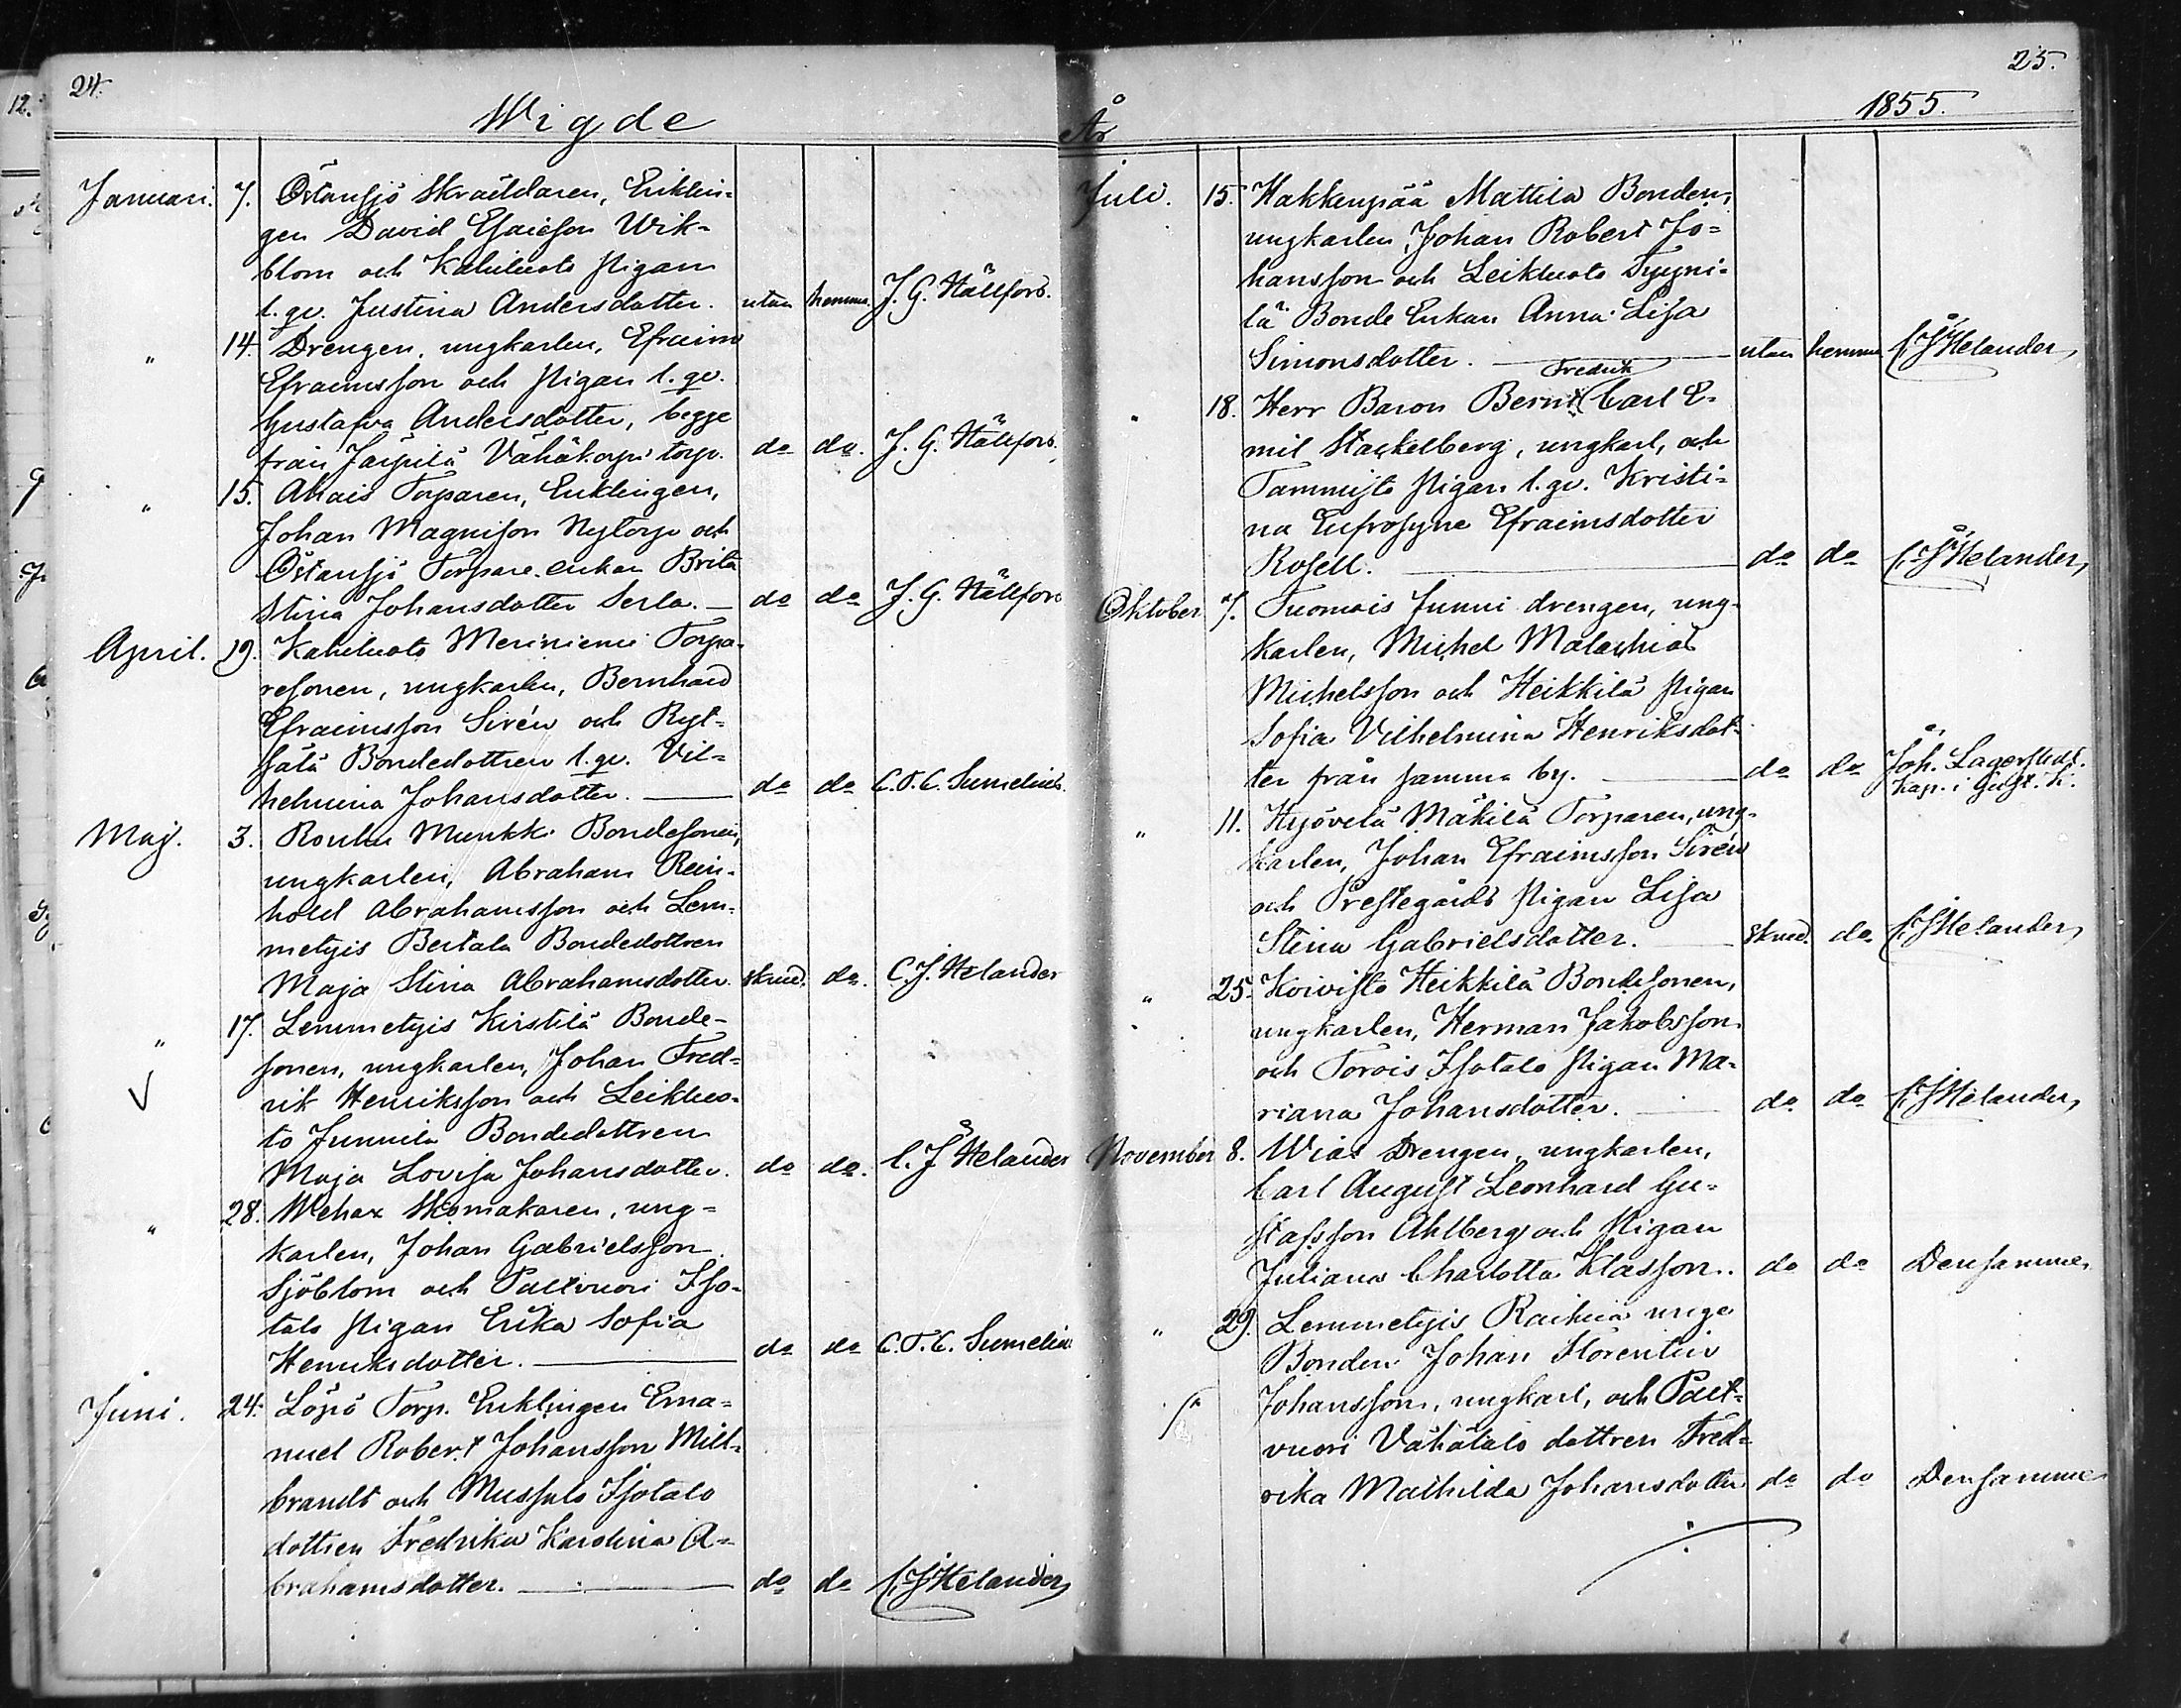 24.
Wigde
Januari. 7. Östansjö Skräddaren, Enklin-
gen David Esaiesson Wik-
blom och Kahiluoto Pigan
l. qv. Justina Andersdotter. utan hemma. J. G. Hällfors.
" 14. Drengen, ungkarlen, Efraim
Efraimsson och Pigan l. qv.
Gustafva Andersdotter, begge
från Järpilä Vähäkorpi torp. do do. J. G. Hällfors.
" 15. Ahais Torparen, Enklingen,
Johan Magnison Nytorp och
Östansjö Torpare enkan Brita
Stina Johansdotter Serlo. — do do J. G. Hällfors
April. 19. Kahiluoto Meriniemi Torpa-
resonen, ungkarlen, Bernhard
Efraimsson Sirén och
Bondedottren l. qv. Vil-
helmina Johansdotter. — do do C. T. C. Sumelius.
Maj. 3. Rouhu Munkki Bondesonen,
ungkarlen, Abraham Rein-
hold Abrahamsson och Lem-
metyis Bertala Bondedottren
Maja Stina Abrahamsdotter. skrud. do. C. J. Helander
" 17. Lemmetyis Kirstilä Bonde-
sonen, ungkarlen, Johan Fred-
rik Henriksson och Leikluo-
to Junnila Bondedottren
Maja Lovisa Johansdotter. do do. C. J. Helander
" 28. Wehax Skomakaren, ung-
karlen, Johan Gabrielsson
Sjöblom och Paltvuori Iso-
talo Pigan Erika Sofia
Henriksdotter. — do do C. T. C. Sumelius
Juni. 24. Löpö Torp. Enklingen Ema-
nuel Robert Johansson Mill-
brandt och Mussalo Isotalo
dottren Fredrika Karolina A-
brahamsdotter. — do do C. J. Helander
25.
År 1855.
Juli. 15. Hakkenpää Mattila Bonden,
ungkarlen, Johan Robert Jo-
hansson och Leikluoto Tyyni-
lä Bonde Enkan Anna Lisa
Simonsdotter. — utan hemma C. J. Helander
Fredrik
" 18. Herr Baron Bernt Carl E-
mil Stackelberg, ungkarl, och
Tammisto Pigan l. qv. Kristi-
na Eufrosyne Efraimsdotter
Rosell. — do do C. J. Helander
Oktober 7. Tuomois Junni drengen, ung-
karlen, Michel Malachias
Michelsson och Heikkilä Pigan
Sofia Vilhelmina Henriksdot-
ter från samma by. — do do Joh. Lagerstedt.
Kap. i Gust. K.
" 11. Hyövelä Mäkilä Torparen, ung-
karlen, Johan Efraimsson Sirén
och Prestegårds Pigan Lisa
Stina Gabrielsdotter. — Skrud. do. C. J. Helander
" 25. Koivisto Heikkilä Bondesonen,
ungkarlen, Herman Jakobsson
och Torois Isotalo Pigan Ma-
riana Johansdotter. — do do C. J. Helander
November 8. Wias Drengen, ungkarlen,
Carl August Leonhard Gu-
stafsson Ahlberg och Pigan
Juliana Charlotta Klasson. do do Densamme.
" 29. Lemmetyis Raikua unge
Bonden Johan Florentin
Johansson, ungkarl, och Palt-
vuori Vähätalo dottren Fred-
rika Mathilda Johansdotter do do Densamme